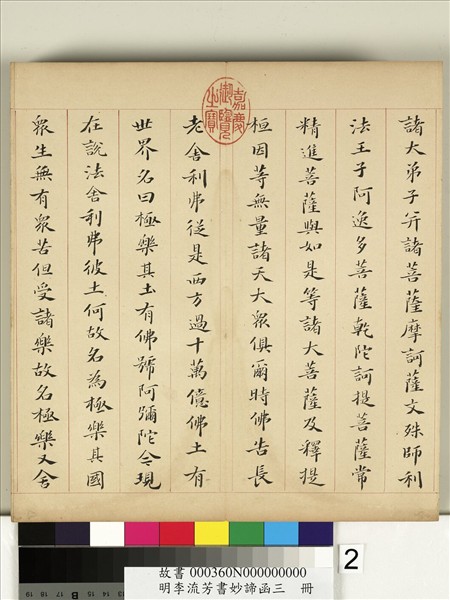 諸大弟子并諸菩薩摩訶薩文殊師利
法王子阿逸多菩薩乾陀訶提菩薩常
精進菩薩與如是等諸大菩薩及釋提
桓因等無量諸天大眾俱爾時佛告長
老舍利弗從是西方過十萬億佛土有
世界名曰極樂其土有佛號阿彌陀今現
在說法舍利弗彼土何故名為極樂其國
眾生無有眾苦但受諸樂故名極樂又舍
嘉慶
御覽
之寶
2
故書 000360N000000000
明李流芳書妙諦函三 冊